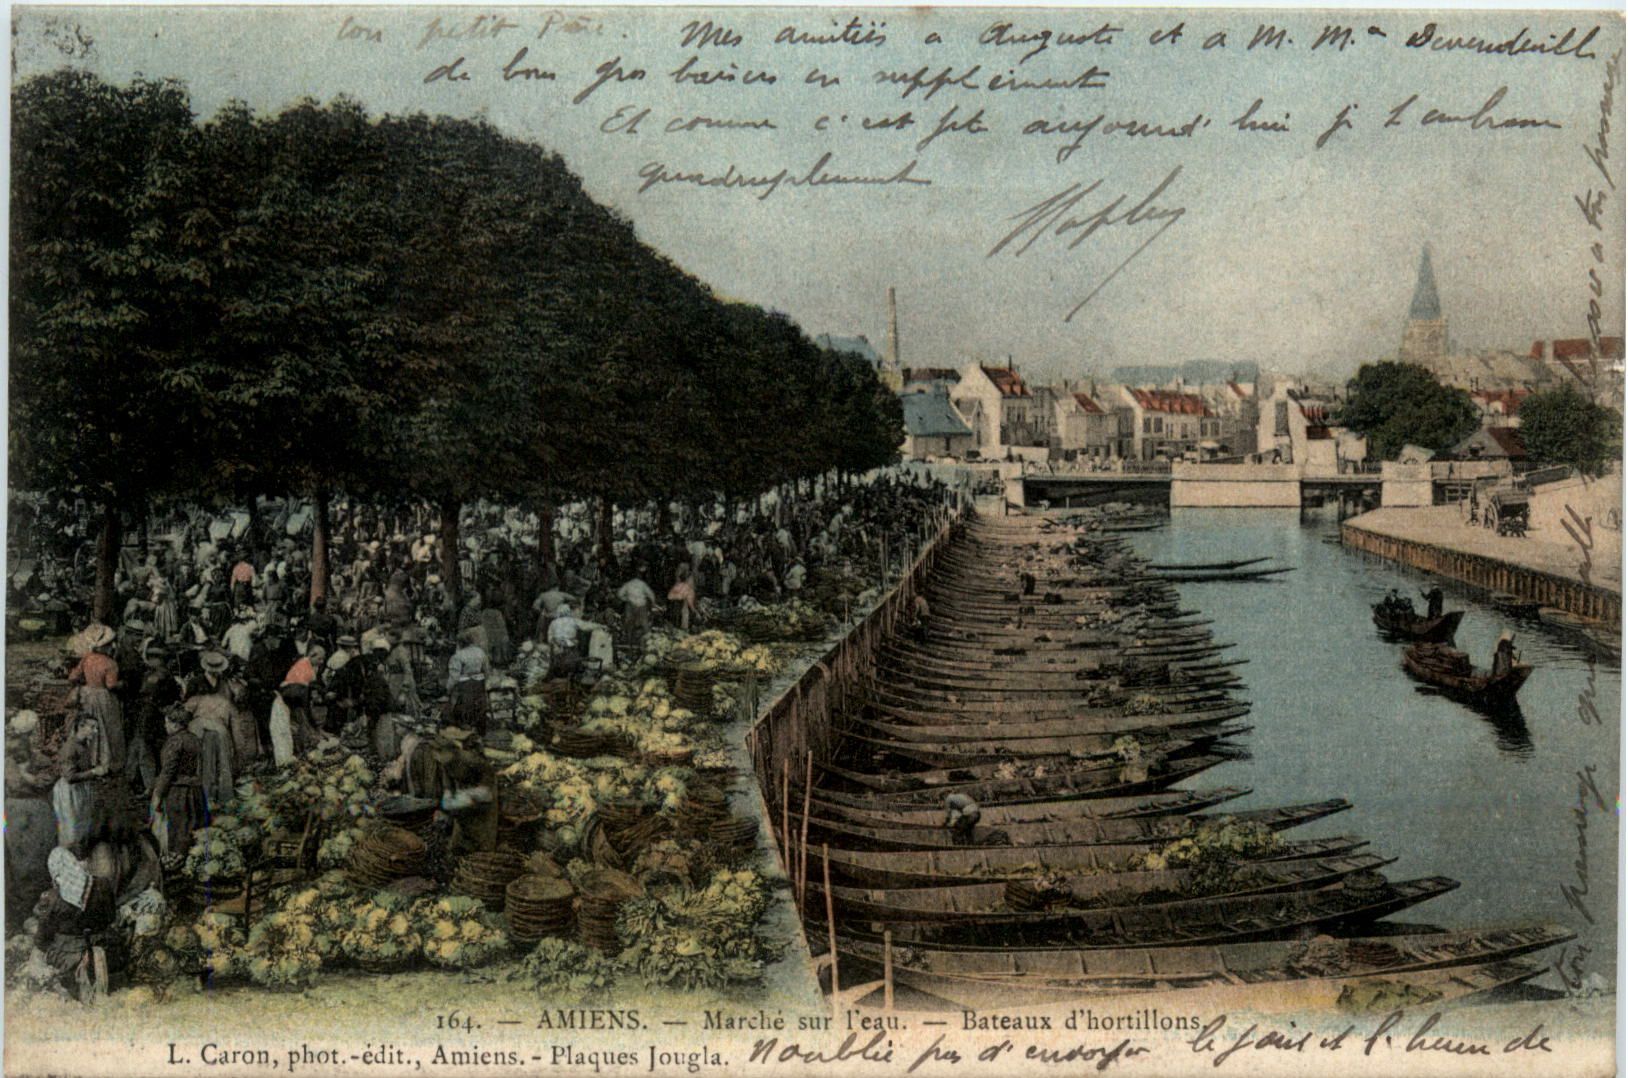 ton petit Père. Mes amitiés a Auguste et a M. Mᵃ Devendeville
de bons gros baisers en supplément
Et comme c'est fete aujourd'hui je t embrasse
quadruplement
164. — AMIENS. — Marché sur l'eau. — Bateaux d'hortillons.
L. Caron, phot.-édit., Amiens. - Plaques Jougla.
N'oublie pas d'envoyer le jour et l'heure de
ton passage que